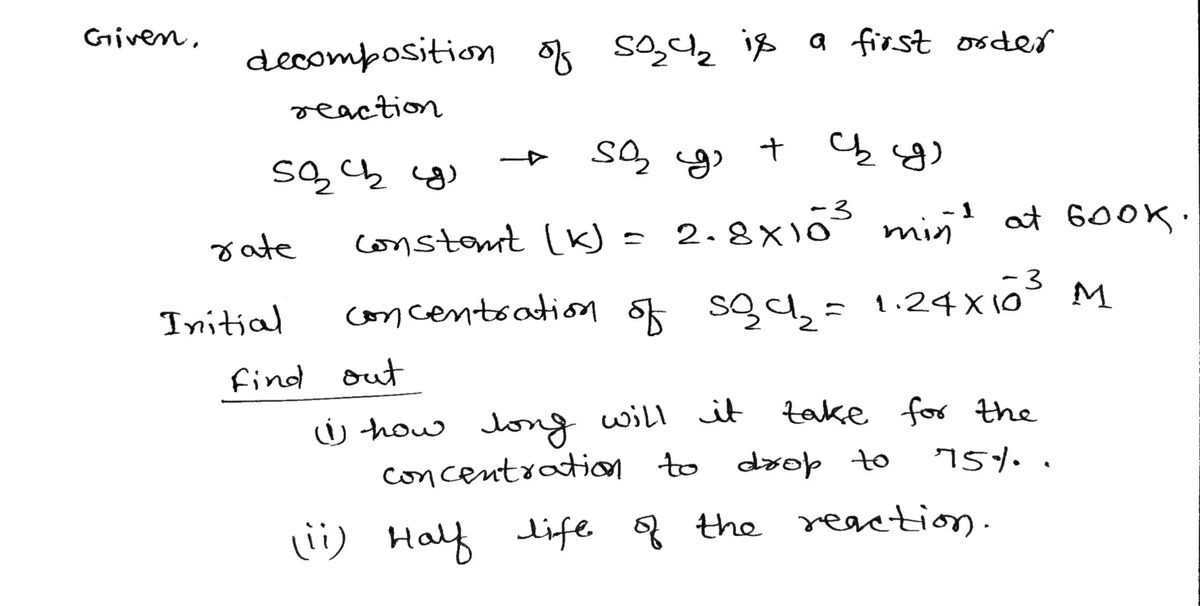 Given. decomposition of SO₂Cl₂ is a first order
reaction
SO₂Cl₂ (g) → SO₂ (g) + Cl₂ (g)
rate constant (K) = 2.8×10⁻³ min⁻¹ at 600K.
Initial concentration of SO₂Cl₂ = 1.24×10⁻³ M
find out
(i) how long will it take for the
concentration to drop to 75%.
(ii) Half life of the reaction.